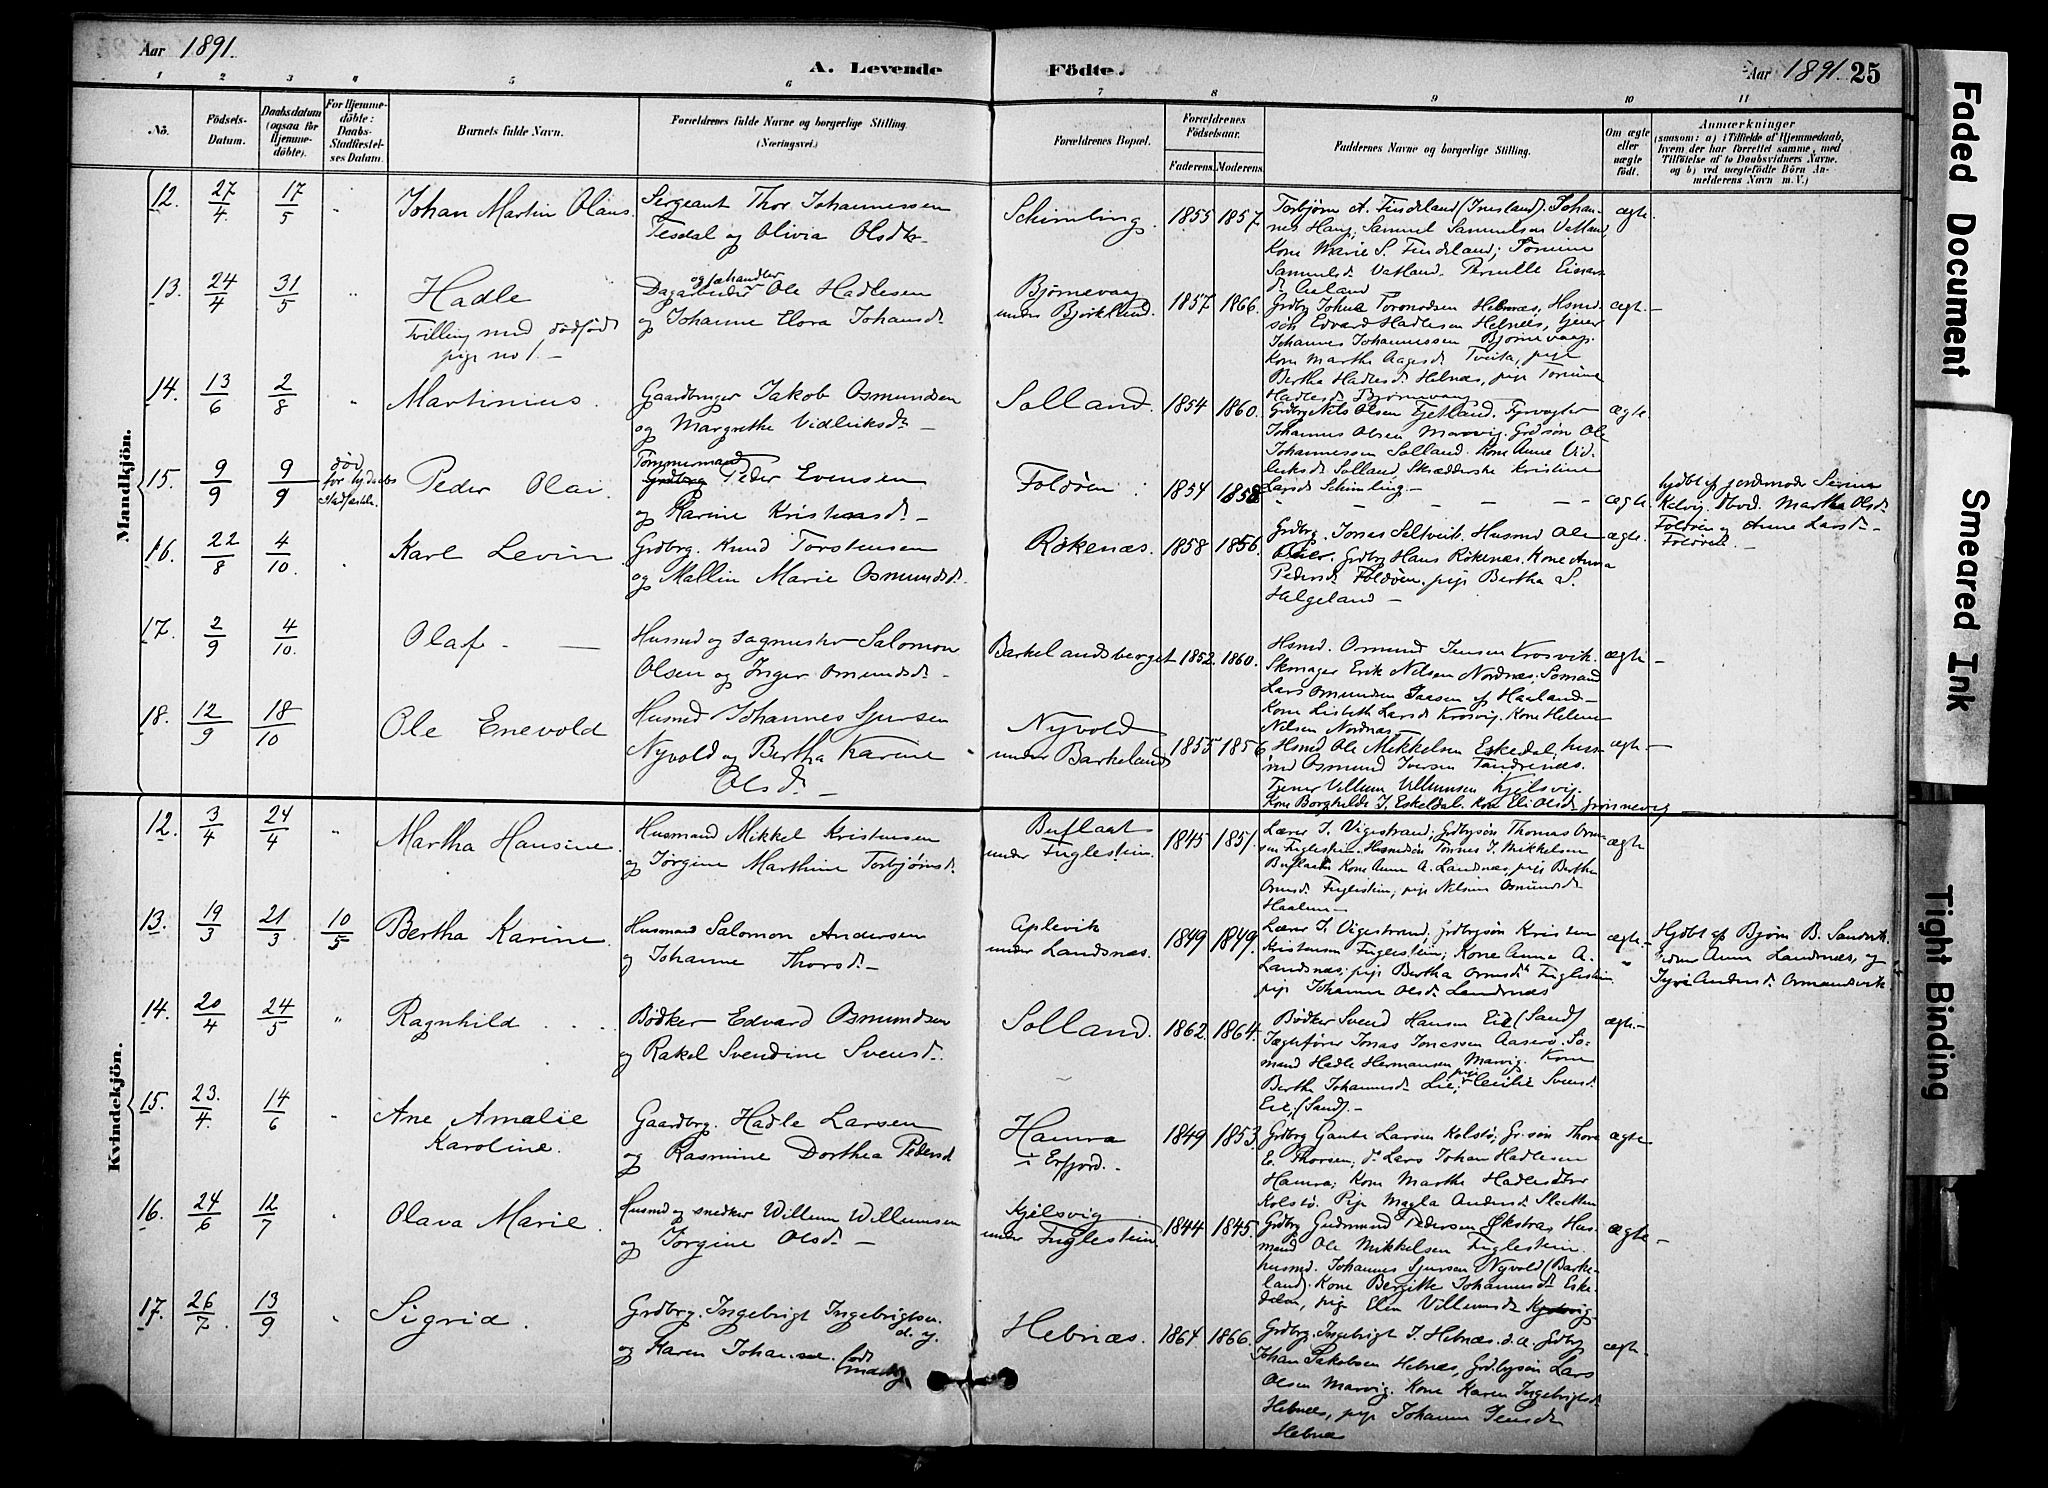 Aar 1891.
A. Levende Födte.
Aar 1891. 25
1 2 3 4 5 6 7 8 9 10 11
No.
Födsels-Datum.
Daabsdatum (ogsaa för Hjemmedöbte).
For Hjemmedöbte: Daabs-Stadfæstelses Datum.
Barnets fulde Navn.
Forældrenes fulde Navne og borgerlige Stilling. (Næringsvei.)
Forældrenes Bopæl.
Forældrenes Födselsaar.
Faderens. Moderens.
Faddernes Navne og borgerlige Stilling.
Om ægte eller uægte födt.
Anmærkninger
(saasom: a) i Tilfælde af Hjemmedaab, hvem der har forrettet samme, med Tilföielse af to Daabsvidners Navne, og b) ved uægtefödte Börn Anmelderens Navn m. V.)
Mandkjön.
12. 27/4 17/5 " Johan Martin Olaus.
Sergeant Thor Johannessen
Tesdal og Olivia Olsdtr.
Schimling. 1855 1857
Torbjørn A. Findeland (Inesland). Johan-
nes Haug; Samuel Samuelsen Vatland,
Kone Marie S. Findland; Tomine
Samuelsd. Vatland. Pernille Einars-
d. Aaland
ægte
13. 24/4 31/5 " Hadle
Tvilling med dødfødt
pige no 1. -
og fehandler
Dagarbeider Ole Hadlesen
og Johanne Elora Johansd.
Bjørnevaag
under Bjørklund.
1857 1866.
Grdbrg Johan Toronodsen Hebnæs, Hsmd.
søn Edvard Hadlesen Hebnæs, tjener
Johannes Johannessen Bjørnevaag.
Kone Marthe Aagesd. Tveita, pige
Bertha Hadlesd. Hebnæs, pige Tomine
Hadlesd. Bjørnevaag
ægte. -
14. 13/6 2/8 " Martinius.
Gaardbruger Jakob Osmundsen
og Margrethe Vidleiksd. -
Solland. 1854 1860.
Grdbrg Nils Olsen Fjetland. Fyrvogter
Johannes Olsen Marvig. Grdsøn Ole
Johannessen Solland. Kone Anne Vid-
leiksd. Solland. Skrædderske Kristine
Larsd. Schimling. -
ægte
15. 9/9 9/9 død
før
Stadfæstelse.
Peder Olai.
Tømmermand
Grdbrg Peder Evensen
og Karine Kristensd. -
Foldøen. 1854 1858
- - - -
ægte.
hjdbt af jordemoder Serine
Kelvig. Hvd. Martha Olsd.
Foldøen og Anne Larsd. -
Foldøen. -
16. 22/8 4/10 " Karl Levin
Grdbrg. Knud Torstensen
og Mallin Marie Osmundsd.
Røkenæs. 1858 1856.
Grdbrg. Jonas Seltveit. Husmd Ole
Grdbrg Hans Røkenæs. Kone Anna
Pedersd. Foldøen. pige Bertha S.
Helgeland -
ægte.
17. 2/9 4/10. Olaf. -
Husmd og sagmester Salomon
Olsen og Inger Omundsd. -
Barkelandsberget 1852. 1860.
Hsmd. Osmund Jensen Krosvik.
Skomager Erik Nilsen Nordnæs; Sømand
Lars Omundsen Faasen af Haaland -
Kone Lisbeth Larsd. Krosvig. Kone Helene
Nilsen Nordnæs
ægte -
18. 12/9 18/10 Ole Enevold
Husmd Johannes Sjursen
Nyvold og Bertha Karine
Olsd. -
Nyvold
under Barkeland
1855 1856
Hsmd Ole Mikkelsen Eskedal, hus-
md Osmund Iversen Tandrenæs.
Tjener Villum Villumsen Kjelsvig.
Kone Borghilde J. Eskedal. Kone Eli Olsd. Grønnevig
ægte -
Kvindekjön.
12. 3/4 24/4 " Martha Hansine.
Husmand Mikkel Kristensen
og Jørgine Marthine Torbjørnsd.
Buflaat
under Fuglestein.
1845 1851.
Lærer J. Vigestrand; Grdbrgsøn Thomas Orm-
sen Fuglestein. Husmdsøn Tonnes J. Mikkelsen
Buflaat. Kone Anna A. Landsnæs, pige Bertha
Ormsd. Fuglestein; pige Nilsine Osmundsd.
Haaheim -
ægte
13. 19/3 21/3 10/5 Bertha Karine.
Husmand Salomon Andersen
og Johanne Thorsd. -
Aplevik
under Landsnæs.
1849 1849.
Lærer J. Vigestrand, grdbrgsøn Kristen
Kristensen Fuglestein; Kone Anna A.
Landsnæs; pige Bertha Ormsd. Fuglestein
pige Johanne Olsd. Landsnæs
ægte. -
"
Hjdbt af Bjørn B. Sandvik.
vidner Anna Landsnæs, og
Syri Andersd. Osmandsvik.
14. 20/4 24/5 " Ragnhild . . .
Bødker Edvard Osmundsen
og Rakel Svendine Svensd.
Solland. 1862. 1864.
Bødker Svend Hansen Eie (Sand)
Jægtefører Jonas Jonassen Aaserø. Sø-
mand Hadle Hermansen Marvig. Kone
Bertha Johannesd. Lie; pige Cecilie Svensd.
Eie, (Sand). -
ægte. -
15. 23/4. 14/6 " Ane Amalie
Karoline.
Gaardbrg. Hadle Larsen
og Rasmine Dorthea Pedersd.
Hamra
i Erfjord. -
1849 1853.
Grdbrg Gaute Larsen Kolstø; Gr.søn Thore
E. Thorsen; d. Lars Johan Hadlesen
Hamra; Kone Marthe Hadlesdtter
Kolstø. Pige Magla Andersd. Sletten
ægte
16. 24/6 12/7 " Olava Marie.
Husmd og snedker Willum Willumsen
og Jørgine Olsd. -
Kjelsvig
under Fuglestein.
1844 1845.
Grdbrg Gudmund Pedersen Økstra, Hus-
mand Ole Mikkelsen Fuglestein.
husmd. Johannes Sjursen Nyvold (Barke-
land); Kone Bergitte Johannesd. Eske-
dalen, pige Elin Villumsd. Kjelsvig
ægte -
17. 26/7 13/9 " Sigrid.
Grdbrg. Ingebrigt Ingebrigtsen
d. y.
og Karen Johanne født
Hebnæs. 1864 1866.
Grdbrg. Ingebrigt J. Hebnæs. d. æ. Grdbrg
Johan Jakobsen Hebnæs, Grdbrgsøn Lars
Olsen Marvig. Kone Karen Ingebrigtsd.
Hebnæs, pige Johanna Jensd.
Hebnæs
ægte. -
Faded Document
Smeared Ink
Tight Binding